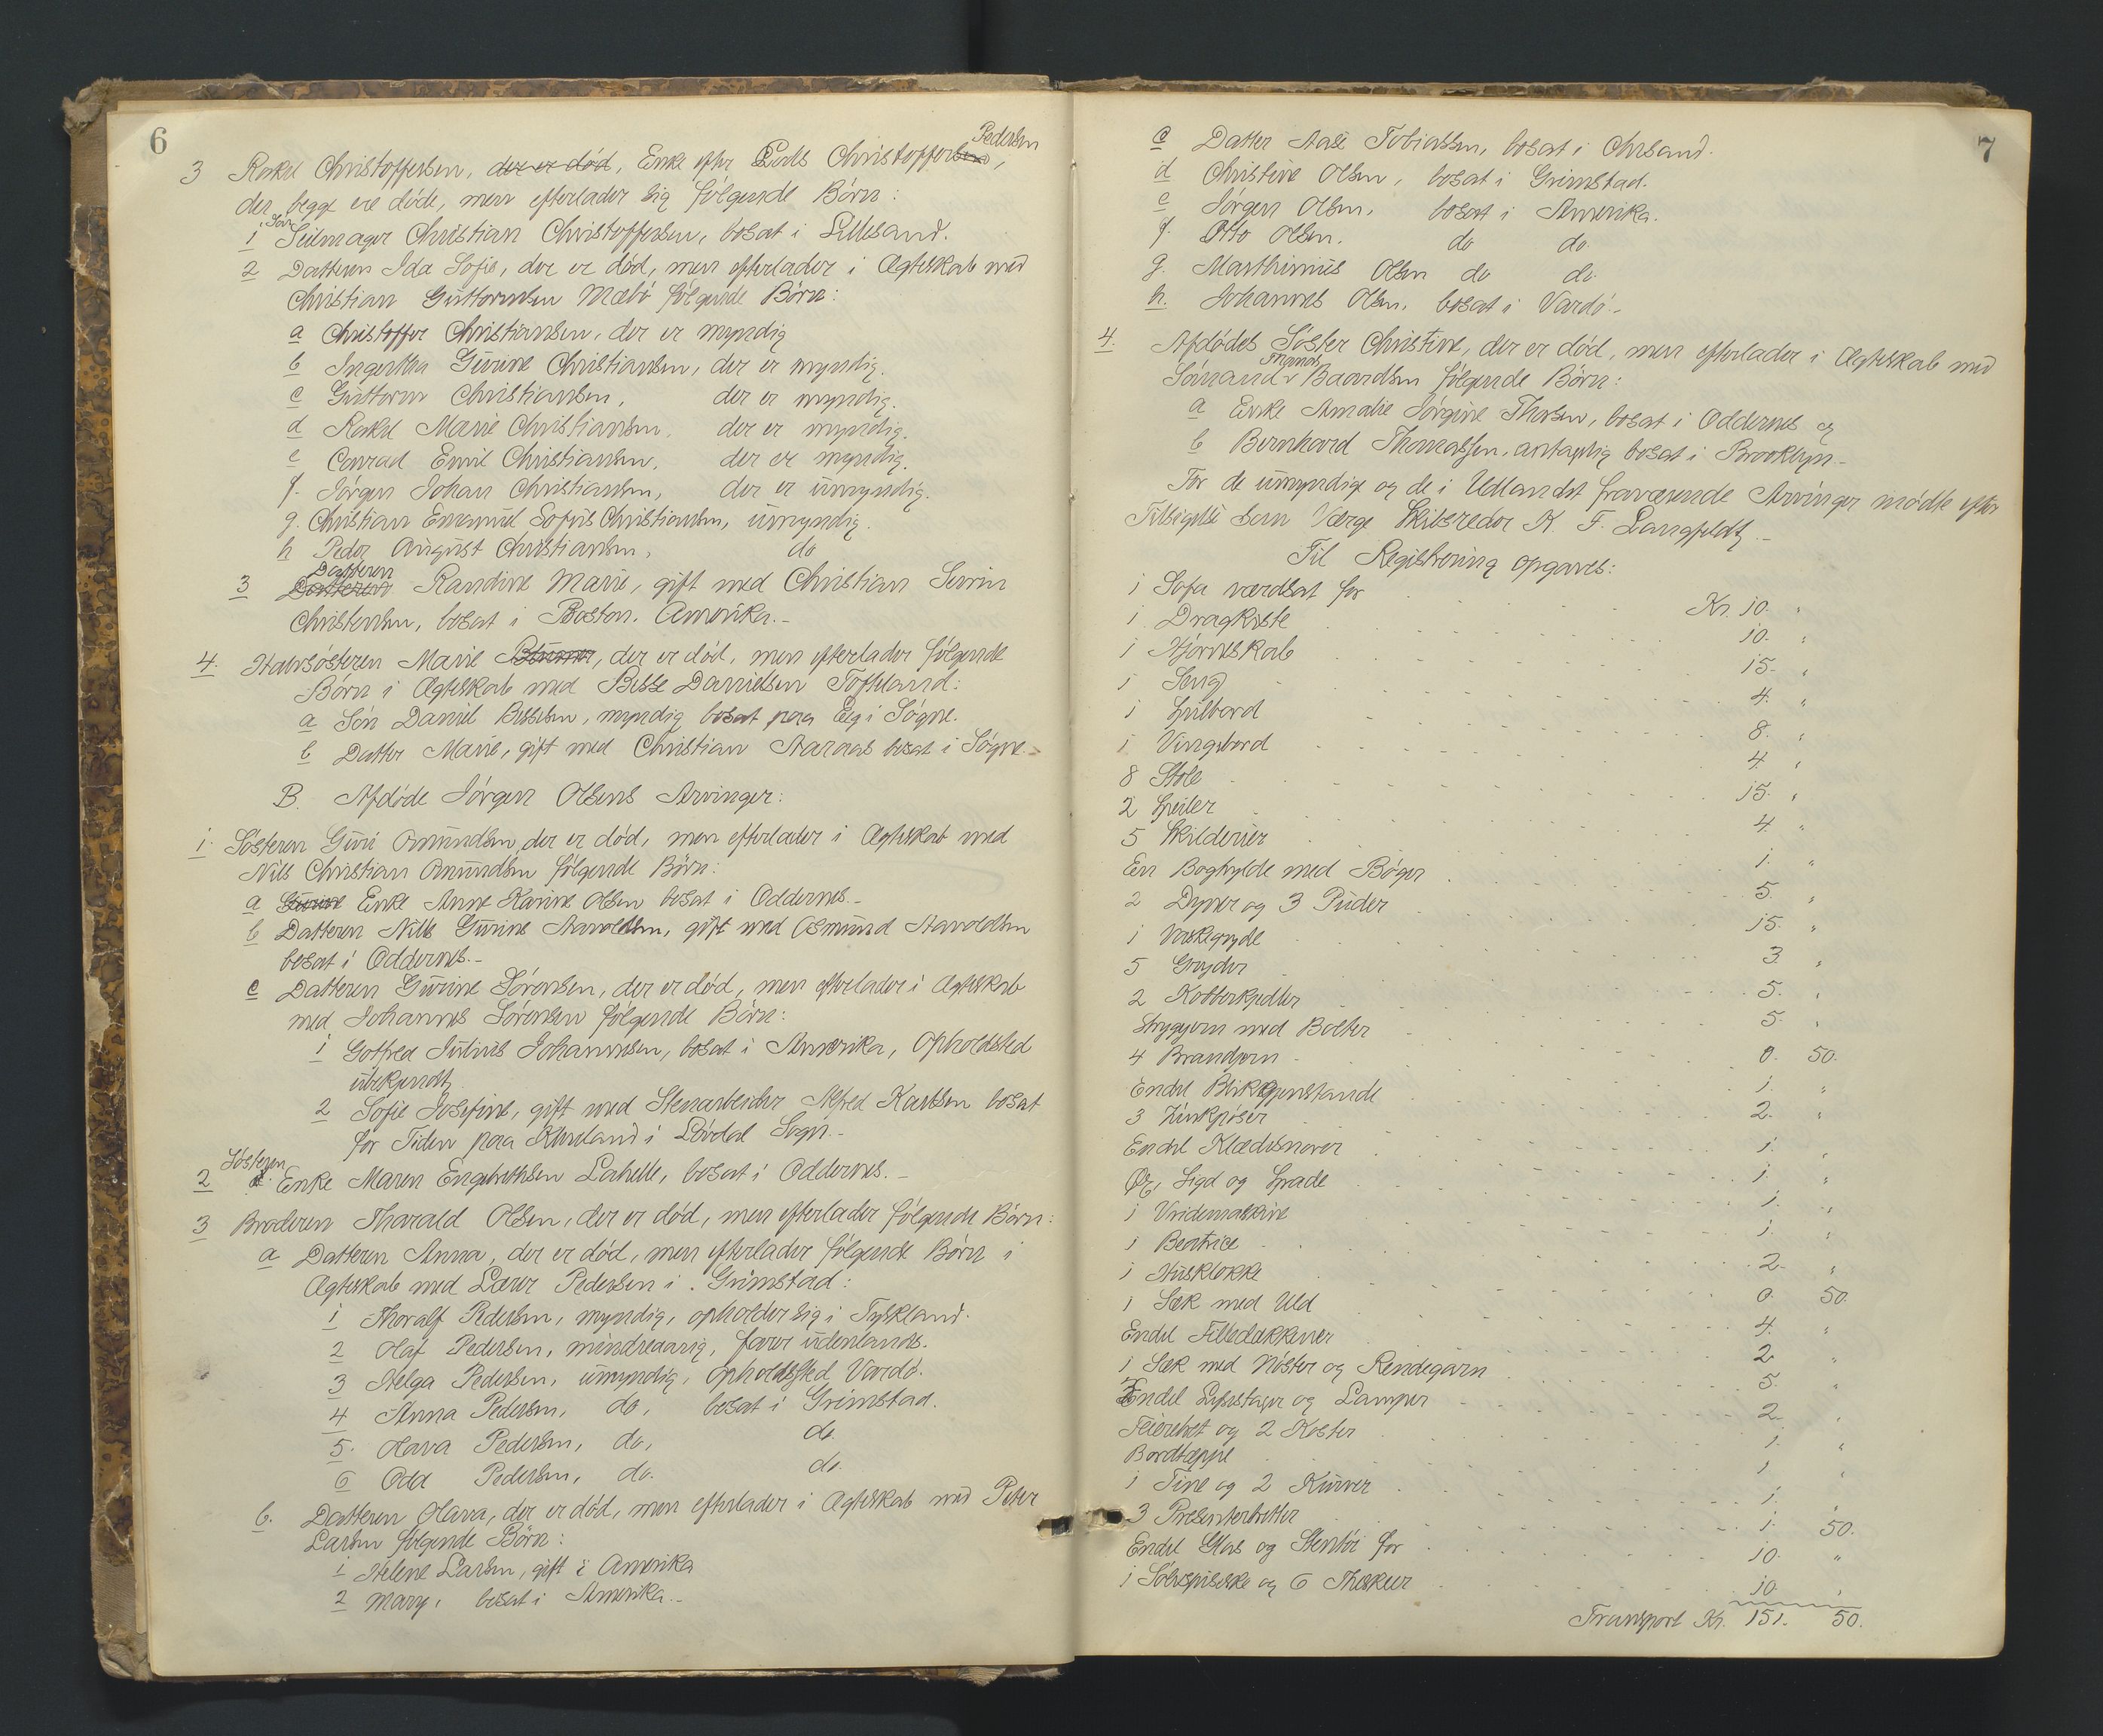 6
Pedersen
3 Rakel Christoffersen, der er død, Enke efter Christoffersen,
der begge ere døde, men efterlader sig følgende Børn:
Søn
1 Seilmager Christian Christoffersen, bosat i Lillesand.
2 Datteren Ida Sofie, der er død, men efterlader i Ægteskab med
Christian Guttormsen Mæbø følgende Børn:
a Christoffer Christiansen, der er myndig
b Ingertha Gurine Christiansen, der er myndig.
c Guttorm Christiansen, der er myndig.
d Rakel Marie Christiansen, der er myndig.
e Conrad Emil Christiansen, der er myndig.
f. Jørgen Johan Christiansen, der er umyndig.
g. Christian Emanuel Sofus Christiansen, umyndig.
h Peder August Christiansen, do
Datteren
3 Datteren Randine Marie, gift med Christian Severin
Christensen, bosat i Boston. Amerika.-
4. Halvsøsteren Marie, der er død, men efterlader følgende
Børn i Ægteskab med Besse Danielsen Tofteland:
a Søn Daniel Bessesen, myndig bosat paa Eeg i Søgne.
b Datter Marie, gift med Christian Aaraas bosat i Søgne.-
B. Afdøde Jørgen Olsens Arvinger:
1. Søsteren Guri Omundsen, der er død, men efterlader i Ægteskab med
Nils Christian Omundsen følgende Børn:
a Gurine Enke Anne Karine Olsen bosat i Oddernes.-
b Datteren Nille Gurine Aavoldsen, gift med Osmund Aavoldsen
bosat i Oddernes.-
c Datteren Gurine Sørensen, der er død, men efterlader i Ægteskab
med Johannes Sørensen følgende Børn:
1 Gotfred Julius Johannesen, bosat i Amerika, Opholdsted
ubekjendt.
2 Sofie Josefine, gift med Stenarbeider Alfred Karlsen bosat
for Tiden paa i Løvdal Sogn.-
Søsteren
2 Enke Maren Engebrethsen Lahelle, bosat i Oddernes.-
3 Broderen Tharald Olsen, der er død, men efterlader følgende Børn:
a Datteren Anna, der er død, men efterlader følgende Børn i
Ægteskab med Lærer Pedersen i Grimstad:
1 Thoralf Pedersen, myndig, opholder sig i Tyskland.
2 Olaf Pedersen, mindreaarig, farer udenlands.
3 Helga Pedersen, umyndig, Opholdsted Vardø.
4 Anna Pedersen, do, bosat i Grimstad.
5. Olava Pedersen, do, do.
6 Odd Pedersen, do. do.
b. Datteren Olava, der er død, men efterlader i Ægteskab med Peter
Larsen følgende Børn:
1 Helene Larsen, gift i Amerika
2 Mary, bosat i Amerika.-
7
c Datter Aase Tobiassen, bosat i Chrsand.
d Christine Olsen, bosat i Grimstad.
e Jørgen Olsen, bosat i Amerika.
f. Otto Olsen. do do.
g. Marthinius Olsen do do
h. Johannes Olsen, bosat i Vardø.-
4. Afdødes Søster Christine, der er død, men efterlader i Ægteskab med
Sømand Baardsen følgende Børn:
a Enke Amalie Jørgine Thorsen, bosat i Oddernes og
b Bernhard Thomassen, antagelig bosat i Brooklyn.-
For de umyndige og de i Udlandet fraværende Arvinger mødte efter
Tilsigelse som Værge Skibsreder K. F. Langfeldt.-
Til Registrering opgaves:
1 Sofa værdsat for Kr. 10. "
1 Dragkiste 10. "
1 Hjørneskab 15. "
1 Seng 4. "
1 Spilbord 8. "
1 Vingebord 4. "
8 Stole 15. "
2 Speiler 4. "
5 Skilderier 1. "
En Boghylde med Bøger 5. "
2 Dyner og 3 Puder 15. "
1 Vaskegryde 3. "
5 Gryder 5. "
2 Kobberkjedler 5. "
Strygejern med Bolter 0. 50.
4 Brandjern 1. "
Endel Blikkgjenstande 2. "
3 Zinkpøser 1. "
Endel Klædesnorer 1. "
Øx, Sigd og Spade 1. "
1 Vridemaskine 1. "
1 Beatrice 2. "
1 Husklokke 0. 50.
1 Sæk med Uld 4. "
Endel Filledækkener 2. "
1 Sæk med Nøster og Rendegarn 5. "
Endel Lysestager og Lamper 2. "
Feiebret og 2 Koster 1. "
Bordtæppe 1. "
1 Tine og 2 Kurver 1. "
3 Presenterbretter 1. 50.
Endel Glas og Stentøi for 10. "
1 Sølvspiseske og 6 Theskeer 10. "
Transport Kr. 151. 50.